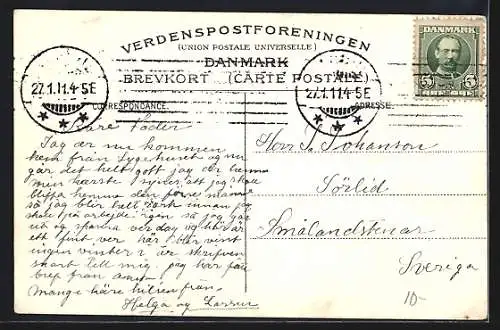 VERDENSPOSTFORENINGEN
(UNION POSTALE UNIVERSELLE)
DANMARK
BREVKORT (CARTE POSTALE)
DANMARK
5 5
27.1.11.4-5E
27.1.11.4-5E
CORRESPONDANCE.
ADRESSE.
Käre Fader
Jag är nu kommen
hem från Sygehuset og nu
går det helt gott jag är hemma
men käreste synes att jag skal
blifva hemma den förse månne
så jag blir helt stark innan jag
skal på arbejde igen så jag går
ud og spasera ver dag og det är
ett fint ver här blir vist
ingen vinter i år skrifven
snart till mig. jag har fåt
bref från
Mange käre hilsen från
Helga og Lassen
Herr J. Johanson
Törlid
Smålandstenar
Sverige
10-